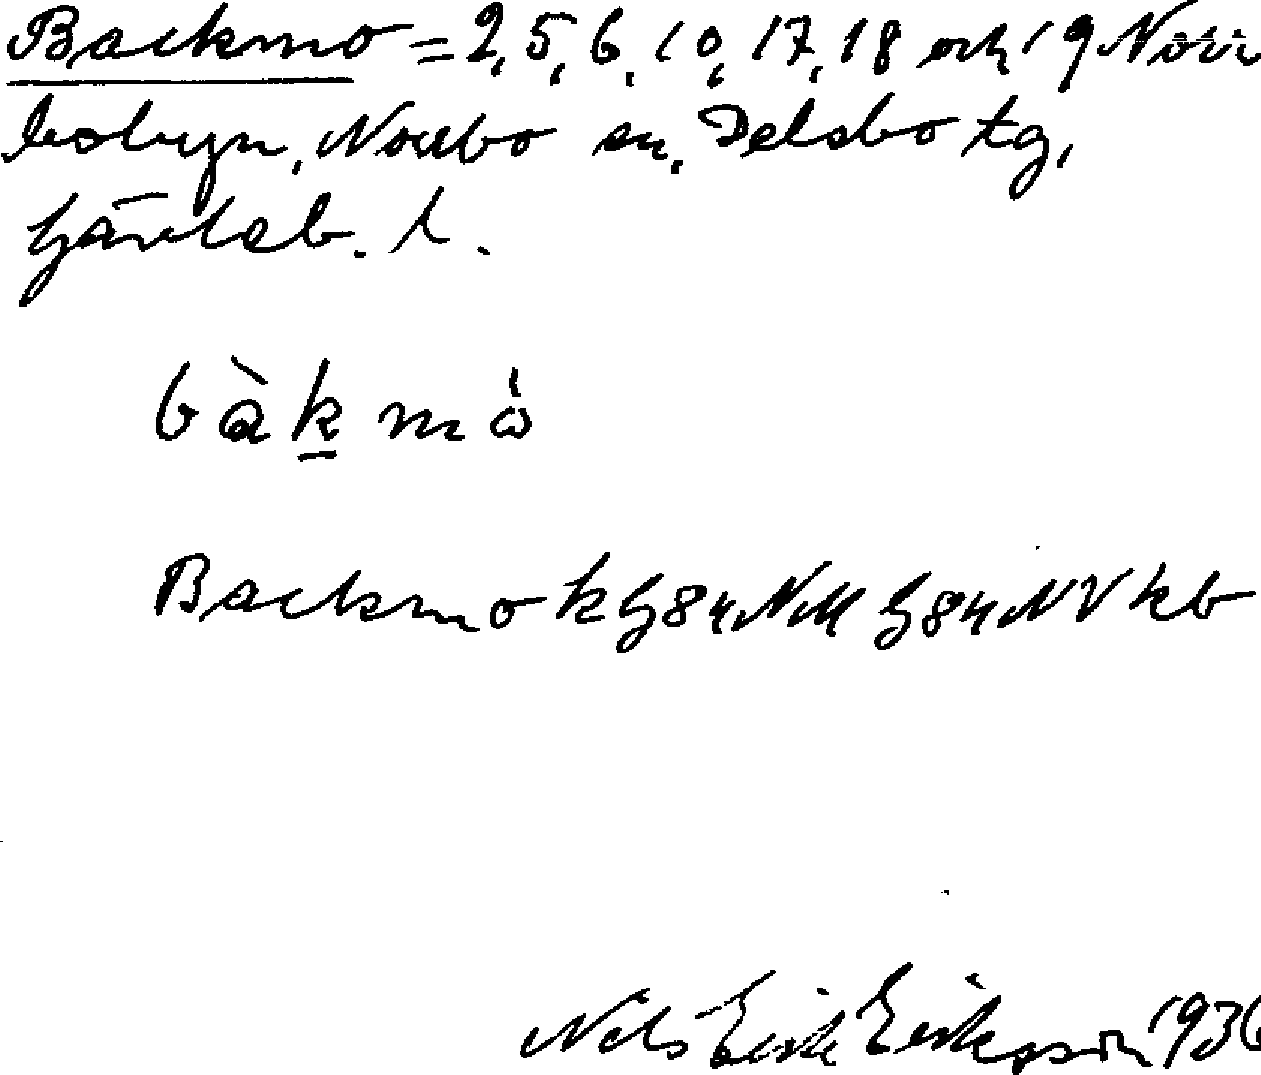 Backmo = 2, 5, 6, 10, 17, 18 och 19 Norr
bobyn, Norrbo sn, Delsbo tg,
Gävleb. l.
bàkmò
Backmo k G84NM G84NV kb
Nils Erik Eriksson 1936